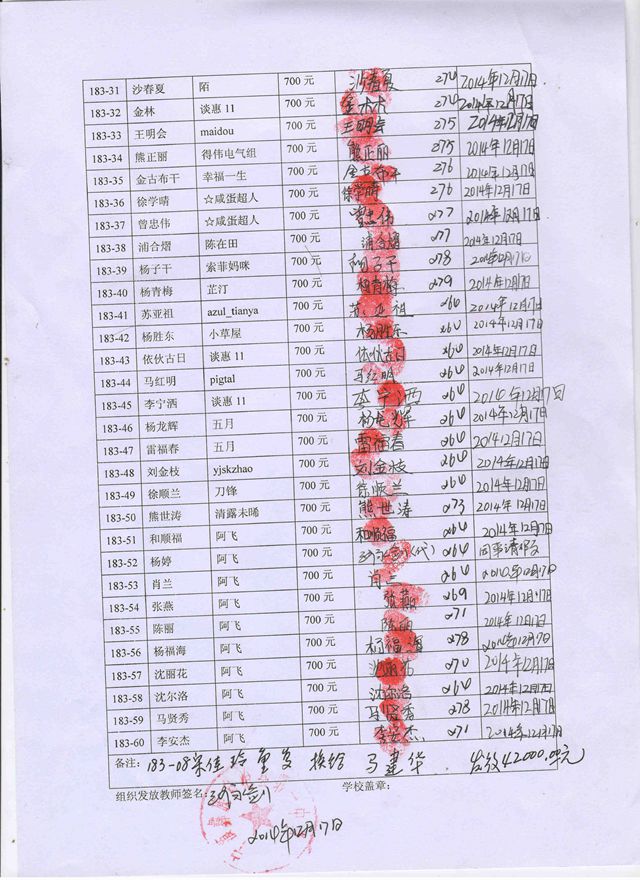 183-31 沙春夏 陌 700 元 沙春夏 274 2014年12月17日
183-32 金林 谈惠 11 700 元 金林 274 2014年12月17日
183-33 王明会 maidou 700 元 王明会 275 2014年12月17日
183-34 熊正丽 得伟电气组 700 元 熊正丽 275 2014年12月17日
183-35 金古布干 幸福一生 700 元 金古布干 276 2014年12月17日
183-36 徐学晴 ☆咸蛋超人 700 元 徐学晴 276 2014年12月17日
183-37 曾忠伟 ☆咸蛋超人 700 元 曾忠伟 277 2014年12月17日
183-38 浦合熠 陈在田 700 元 浦合熠 277 2014年12月17日
183-39 杨子干 索菲妈咪 700 元 杨子干 278 2014年12月17日
183-40 杨青梅 芷汀 700 元 杨青梅 279 2014年12月17日
183-41 苏亚祖 azul_tianya 700 元 苏亚祖 264 2014年12月17日
183-42 杨胜东 小草屋 700 元 杨胜东 264 2014年12月17日
183-43 依伙古日 谈惠 11 700 元 依伙古日 264 2014年12月17日
183-44 马红明 pigtal 700 元 马红明 264 2014年12月17日
183-45 李宁洒 谈惠 11 700 元 李宁洒 264 2014年12月17日
183-46 杨龙辉 五月 700 元 杨龙辉 264 2014年12月17日
183-47 雷福春 五月 700 元 雷福春 264 2014年12月17日
183-48 刘金枝 yjskzhao 700 元 刘金枝 264 2014年12月17日
183-49 徐顺兰 刀锋 700 元 徐顺兰 264 2014年12月17日
183-50 熊世涛 清露未晞 700 元 熊世涛 273 2014年12月17日
183-51 和顺福 阿飞 700 元 和顺福 264 2014年12月17日
183-52 杨婷 阿飞 700 元 (代) 264 因事请假
183-53 肖兰 阿飞 700 元 肖兰 264 2014年12月17日
183-54 张燕 阿飞 700 元 张燕 269 2014年12月17日
183-55 陈丽 阿飞 700 元 陈丽 271 2014年12月17日
183-56 杨福海 阿飞 700 元 杨福海 278 2014年12月17日
183-57 沈丽花 阿飞 700 元 沈丽花 270 2014年12月17日
183-58 沈尔洛 阿飞 700 元 沈尔洛 264 2014年12月17日
183-59 马贤秀 阿飞 700 元 马贤秀 278 2014年12月17日
183-60 李安杰 阿飞 700 元 李安杰 271 2014年12月17日
备注: 183-08 佳玲重复 换给 马建华 发放42000.00元
组织发放教师签名: 学校盖章:
2014年12月17日